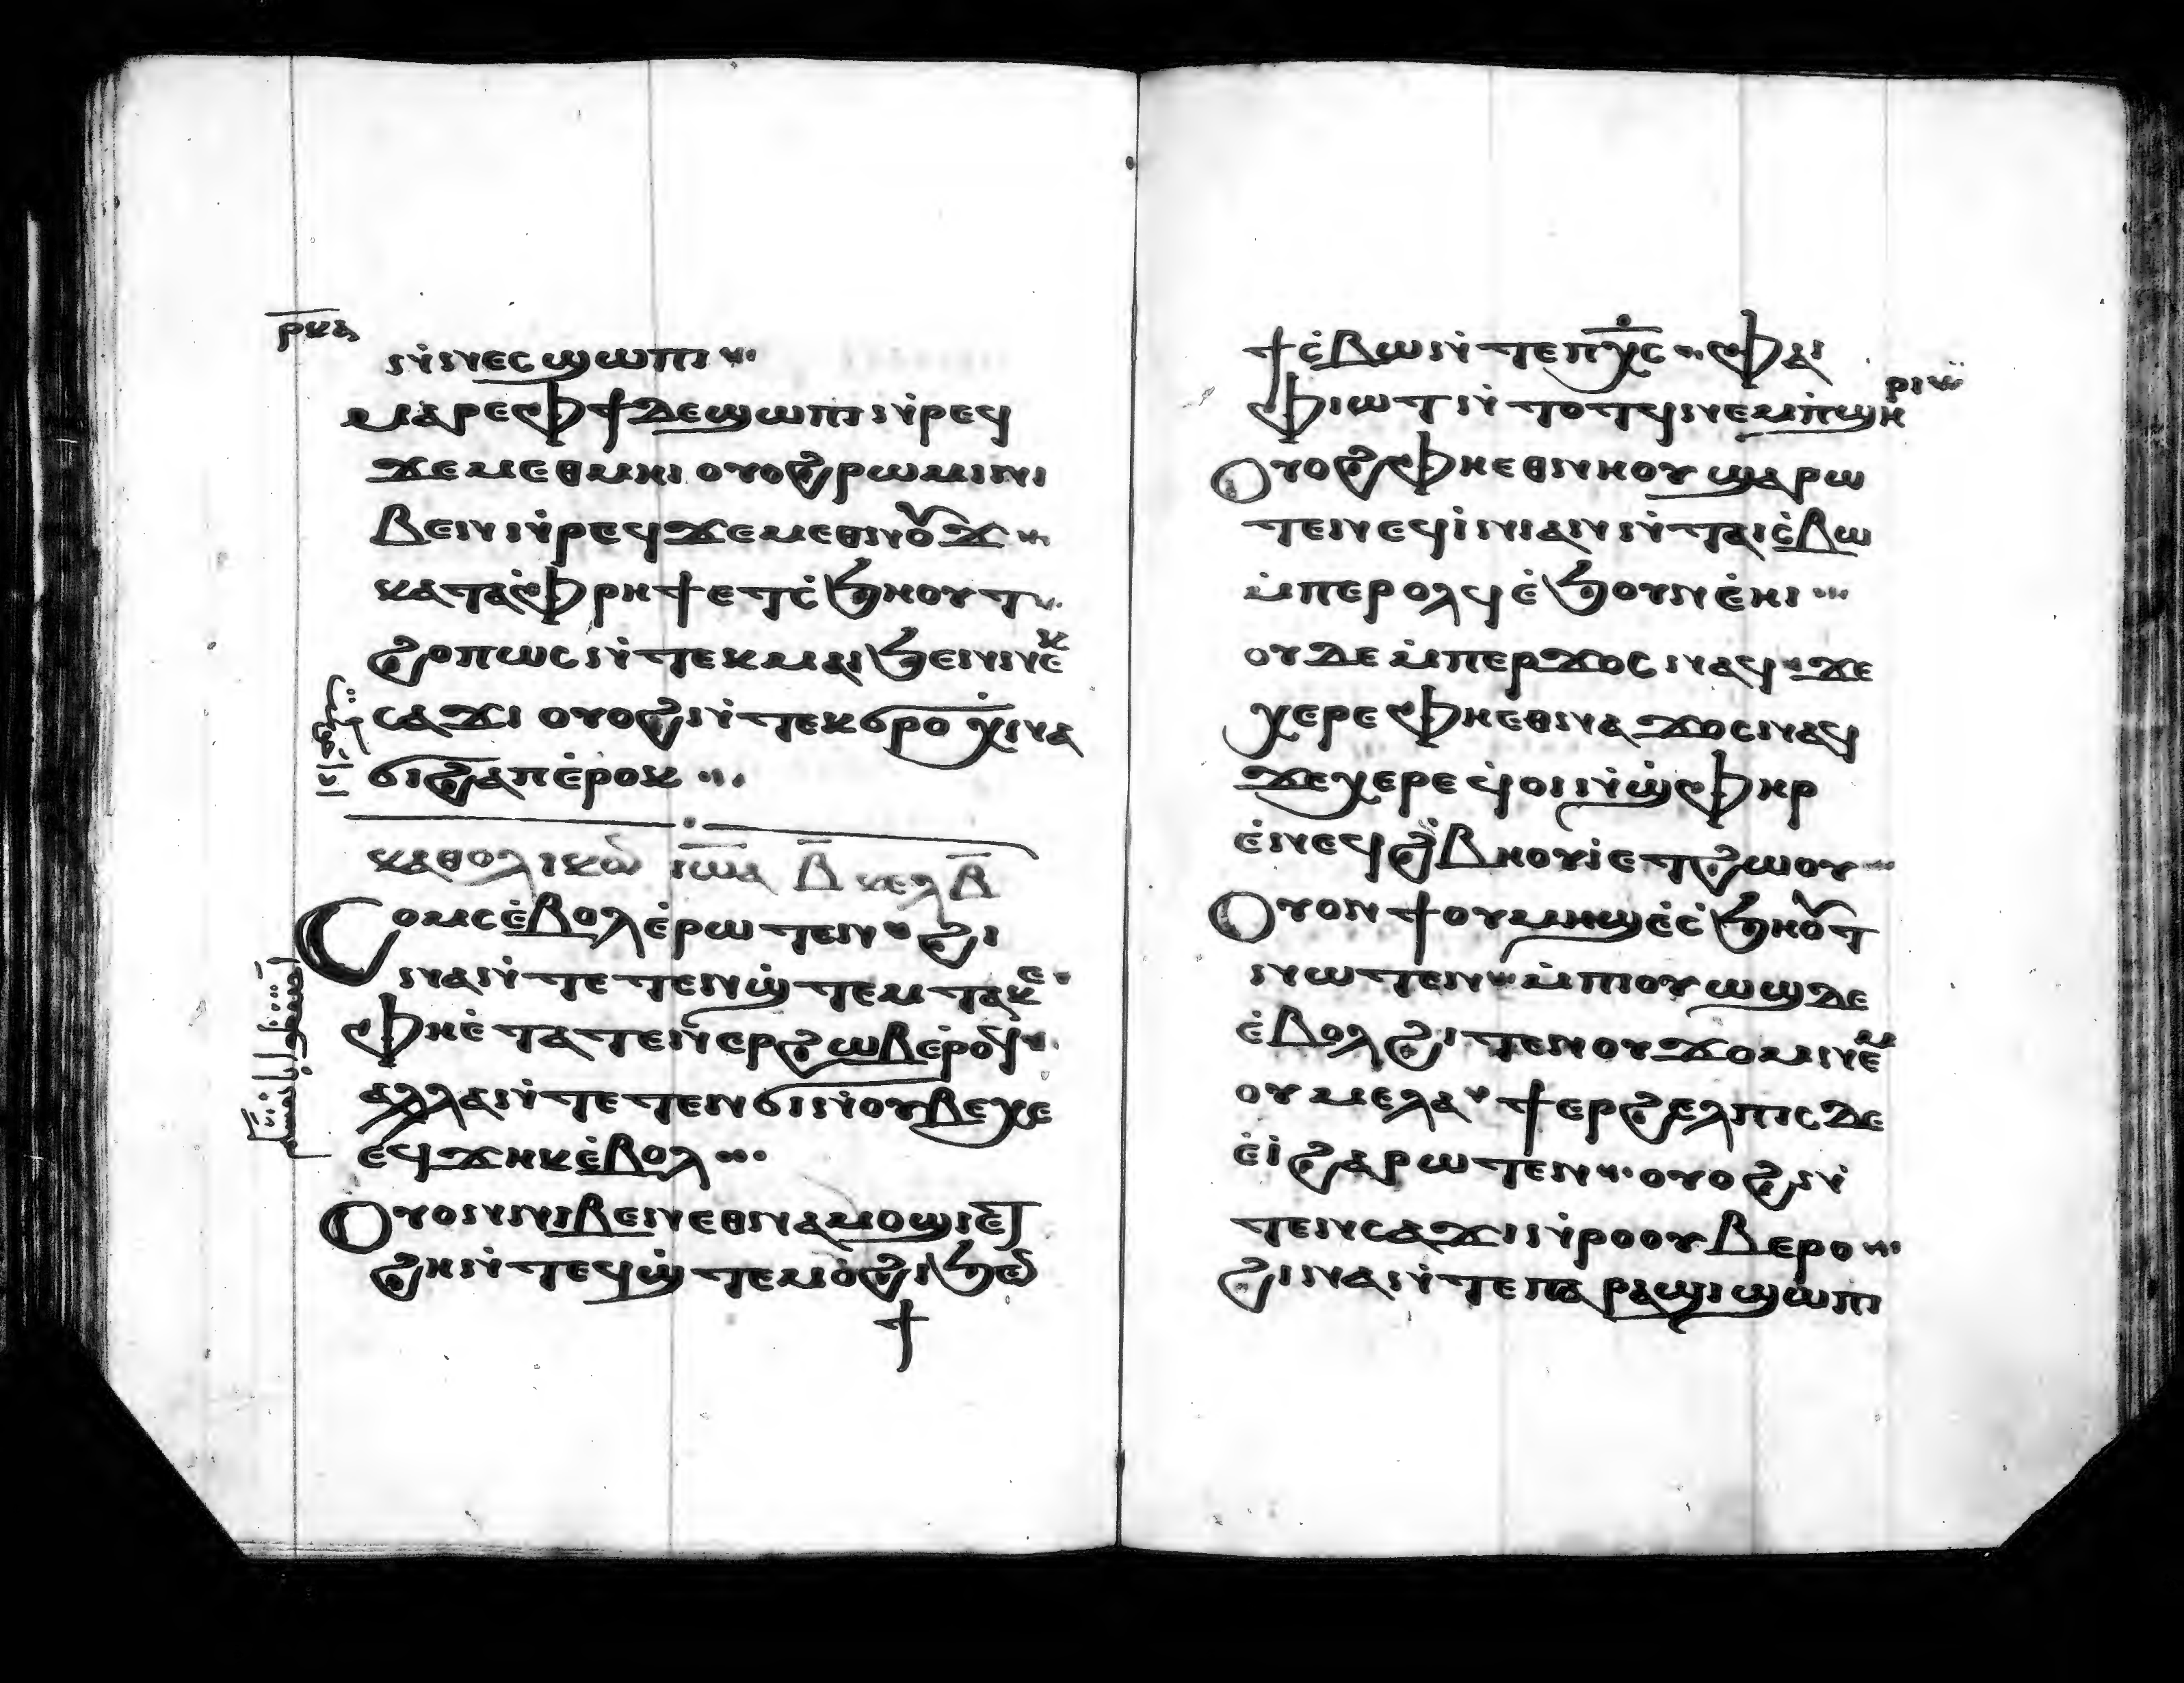 ⲣⲕⲁ
ⲛ̇ⲛⲉⲥϣⲱⲡⲓ
ⲙⲁⲣⲉⲫϯⲇⲉϣⲱⲡⲓⲛ̇ⲣⲉϥ
ϫⲉⲙⲉⲑⲙⲏⲓ ⲟⲩⲟϩⲣⲱⲙⲓⲛⲓ
ⲃⲉⲛⲛ̇ⲣⲉϥϫⲉⲙⲉⲑⲛⲟⲩϫ
ⲕⲁⲧⲁⲫ̇ⲣⲏϯⲉⲧⲥ̇ϧⲏⲟⲩⲧ
ϩⲟⲡⲱⲥⲛ̇ⲧⲉⲕⲙⲁⲓϧⲉⲛⲛⲉⲕ
ⲥⲁϫⲓ ⲟⲩⲟϩⲛ̇ⲧⲉⲕϭⲣⲟ ⲭⲓⲛⲁ
ϭⲓϩⲁⲡⲉ̇ⲣⲟⲕ
ⲕⲁⲑⲟⲗⲓⲕⲟⲛ ⲓⲱⲁ ⲃ̅ ⲕⲉⲗ ⲃ̅
Ⲥⲟⲙⲥⲉ̇ⲃⲟⲗⲉ̇ⲣⲱⲧⲉⲛ ϩⲓ
ⲛⲁⲛ̇ⲧⲉⲧⲉⲛϣ̇ⲧⲉⲙⲧⲁⲕⲉ
ⲫⲏⲉ̇ⲧⲁⲧⲉⲛⲉⲣϩⲱⲃⲉ̇ⲣⲟϥ
ⲁⲗⲗⲁⲛ̇ⲧⲉⲧⲉⲛϭⲓⲛ̇ⲟⲩⲃⲉⲭⲉ
ⲉϥϫⲏⲕⲉ̇ⲃⲟⲗ
Ⲟⲩⲟⲛⲛⲓⲃⲉⲛⲉⲑⲛⲁⲙⲟϣⲓⲉ̇ⲧ
ϩⲏⲛ̇ⲧⲉϥϣ̇ⲧⲉⲙⲟ̇ϩⲓϧⲉⲛ
ϯ
ϯⲥ̇ⲃⲱⲛ̇ⲧⲉⲡⲭ̅ⲥ ⲫⲁⲓ
ⲫⲓⲱⲧⲛ̇ⲧⲟⲧϥⲛⲉⲙⲡ̇ϣⲏⲣⲓ
Ⲟⲩⲟϩⲫⲏⲉⲑⲛⲏⲟⲩϣⲁⲣⲱ
ⲧⲉⲛⲉϥⲓ̇ⲛⲓⲁⲛⲛ̇ⲧⲁⲓⲥ̇ⲃⲱ
ⲙ̇ⲡⲉⲣⲟⲗϥⲉ̇ϧⲟⲩⲛⲉ̇ⲏⲓ
ⲟⲩⲇⲉⲙ̇ⲡⲉⲣϫⲟⲥⲛⲁϥ ϫⲉ
ⲭⲉⲣⲉⲫⲏⲉⲑⲛⲁϫⲟⲥⲛⲁϥ
ϫⲉⲭⲉⲣⲉϥ̇ⲟⲓⲛ̇ϣ̇ⲫⲏⲣ
ⲉ̇ⲛⲉϥϩ̇ⲃⲏⲟⲩⲓ̇ⲉⲧϩⲱⲟⲩ
Ⲟⲩⲟⲛϯⲟⲩⲙⲏϣⲉ̇ⲥ̇ϧⲏⲟⲩⲧ
ⲛⲱⲧⲉⲛ ⲙ̇ⲡⲓⲟⲩⲱϣⲇⲉ
ⲉ̇ⲃⲟⲗϩⲓⲧⲉⲛⲟⲩϫⲟⲙⲛⲉⲙ
ⲟⲩⲙⲉⲗⲁ ϯⲉⲣϩⲉⲗⲡⲓⲥⲇⲉ
ⲉ̇ⲓ̇ϩⲁⲣⲱⲧⲉⲛ ⲟⲩⲟϩⲛ̇
ⲧⲉⲛⲥⲁϫⲓⲛ̇ⲣⲟⲟⲩⲃⲉⲣⲟ
ϩⲓⲛⲁⲛ̇ⲧⲉⲡⲁⲣⲁϣⲓϣⲱⲡⲓ